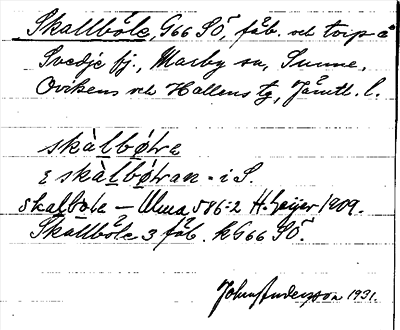 Skallböle, G66 SÖ, fåb. vid torp å
Svedje fj., Marby sn, Sunne,
Ovikens och Hallens tg, Jämtl. l.
skàlbøtre
ɛ skàlbøtran - i S.
skalbole – Ulma 586:2 H. Geijer 1909.
Skallböle 3 fåb. kG66 SÖ.
John Andersson 1931.